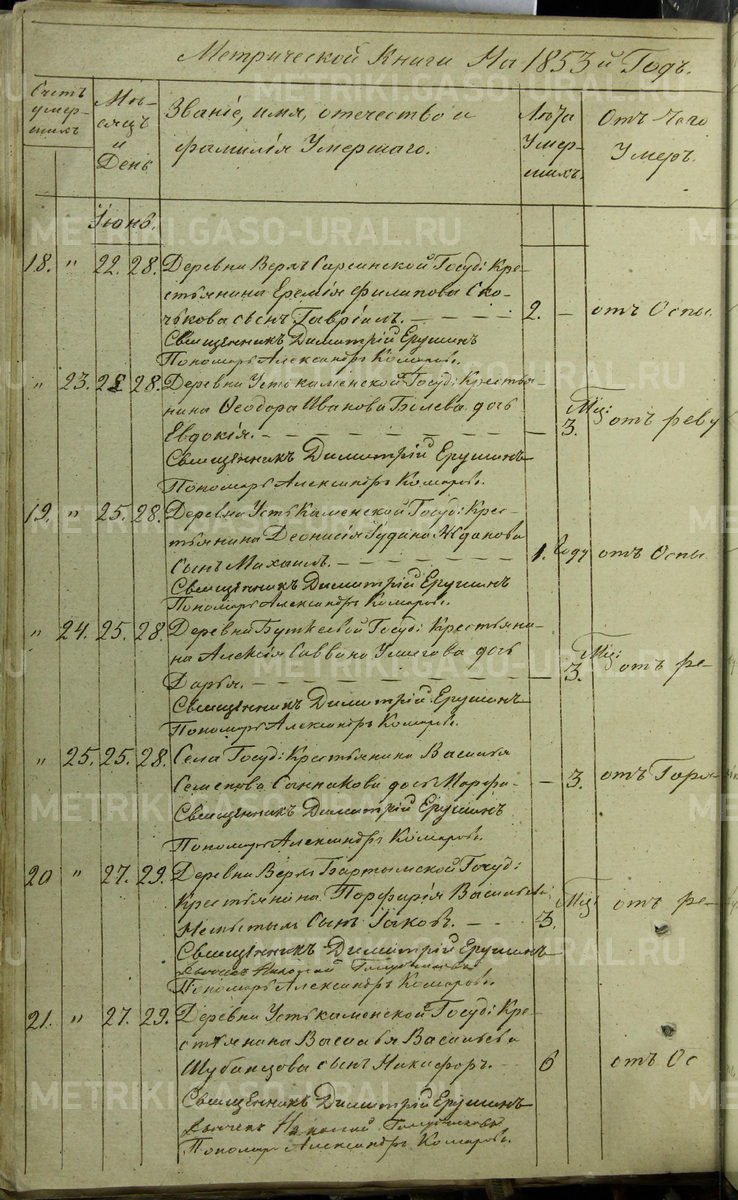 Метрической Книги На 1853й Годъ.
Счетъ умер-шихъ Мѣ-сяцъ и День Званіе, имя, отечество и фамилія Умершаго. Лѣта Умер-шихъ. Отъ чего Умеръ.
Іюнь.
18. " 22. 28. Деревни Верхъ Сарсинской Госуд: Кре-
стьянина Еремія Филипова Ско-
чькова сынъ Гавріилъ. 2. — отъ Оспы.
Священникъ Димитрій Ерушинъ
Пономарь Александръ Комаровъ.
" 23. 22 28. Деревни Устькаменской Госуд: Крестья-
нина Ѳеодора Иванова Бѣлева дочь
Евдокія. — 3. Мц: отъ реву
Священникъ Димитрій Ерушинъ
Пономарь Александръ Комаровъ.
19. " 25. 28. Деревни Усть Каменской Госуд: Крес-
тьянина Деонисія Гудина Жданова
Сынъ Михаилъ. 1. Году отъ Оспы
Священникъ Димитрій Ерушинъ
Пономарь Александръ Комаровъ.
" 24. 25. 28. Деревни Госуд: Крестьяни-
на Алексія Саввина дочь
Дарья. — 3. Мц: отъ ре-
Священникъ Димитрій Ерушинъ
Пономарь Александръ Комаровъ.
" 25. 25. 28. Села Госуд: Крестьянина Василья
Семенова Санникова дочь Марфа — 3. отъ Горя
Священникъ Димитрій Ерушинъ
Пономарь Александръ Комаровъ.
20 " 27. 29. Деревни Верхъ Бартымской Госуд:
Крестьянина Порфирія Васильева
Сынъ Іаковъ. 3. Мц: отъ ре-
Священникъ Димитрій Ерушинъ
Пономарь Александръ Комаровъ.
21. " 27. 29. Деревни Устькаменской Госуд: Кре-
стьянина Василья Васильева
Шубанцова сынъ Никифоръ. 6 отъ Ос
Священникъ Димитрій Ерушинъ
Дьячекъ
Пономарь Александръ Комаровъ.
METRIKI.GASO-URAL.RU